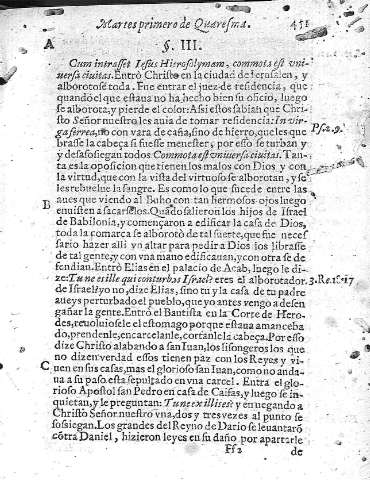 Martes primero de Quaresma.
451
A
§. III.
Cum intrasset Iesus Hierosolymam, commota est vni-
uersa ciuitas. Entrò Christo en la ciudad de Ierusalen, y
alborotose toda. Fue entrar el juez de residencia, que
quando el que estaua no ha hecho bien su oficio, luego
se alborota, y pierde el color: Assi estos sabian que Chri-
sto Señor nuestro les auia de tomar residencia: In vir-
ga ferrea, no con vara de caña, sino de hierro, que les que
Ps. 2. 9.
brasse la cabeça si fuesse menester, por esso se turban y
y desasosiegan todos Commota est vniuersa ciuitas. Tan-
ta es la oposicion que tienen los malos con Dios y con
la virtud, que con la vista del virtuoso se alborotan, y se
les rebuelue la sangre. Es como lo que sucede entre las
aues que viendo al Buho con tan hermosos ojos luego
B
enuisten a sacarselos. Quãdo salieron los hijos de Israel
de Babilonia, y començaron a edificar la casa de Dios,
toda la comarca se alborotò de tal suerte, que fue neces-
sario hazer alli vn altar para pedir a Dios los librasse
de tal gente, y con vna mano edificauan, y con otra se de-
fendian. Entrò Elias en el palacio de Acab, luego le di-
ze: Tu ne es ille qui conturbas Israel? eres el alborotador.
3. Re. 18. 17
de Israel? yo no, dize Elias, sino tu y la casa de tu padre
aueys perturbado el pueblo, que yo antes vengo a desen-
gañar la gente. Entrò el Bautista en la Corte de Hero-
des, reuoluiosele el estomago porque estaua amanceba
do, prendenle, encarcelanle, cortanle la cabeça. Por esso
dize Christo alabando a san Iuan, los lisongeros los que
no dizen verdad essos tienen paz con los Reyes y vi-
C
uen en sus casas, mas el glorioso san Iuan, como no anda-
ua a su paso esta sepultado en vna carcel. Entra el glo-
rioso Apostol san Pedro en casa de Caifas, y luego se in-
quietan, y le preguntan: Tu ne ex illis es? y en negando a
Christo Señor nuestro vna, dos y tres vezes al punto se
sossiegan. Los grandes del Reyno de Dario se leuantarõ
cõtra Daniel, hizieron leyes en su daño por apartarle
Ff 2
de